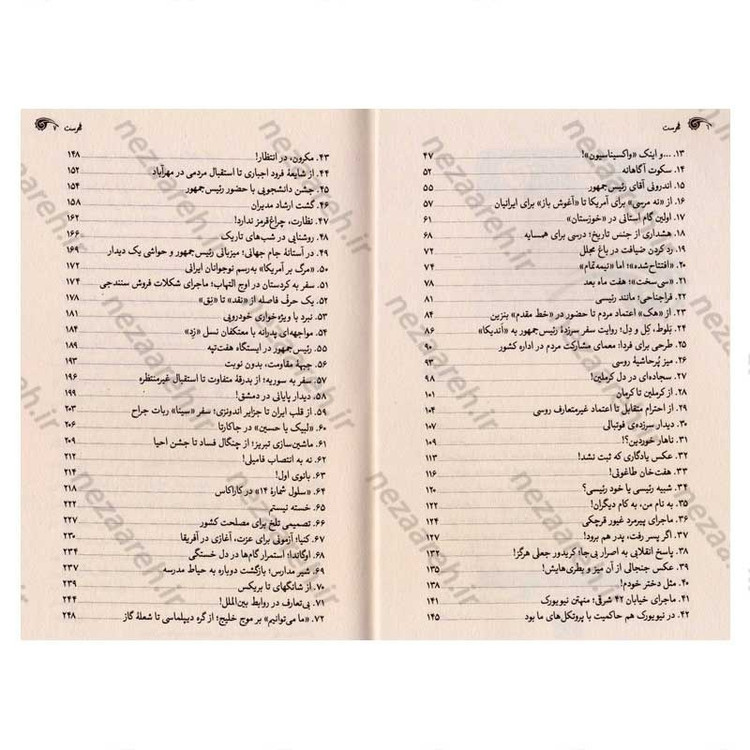 ۶ فهرست
۱۳. ...و اینک «واکسیناسیون»! ۴۷
۱۴. سکوت آگاهانه ۵۲
۱۵. اندرونی آقای رئیس‌جمهور ۵۵
۱۶. از «نه مرسی» برای آمریکا تا «آغوش باز» برای ایرانیان ۵۷
۱۷. اولین گام استانی در «خوزستان» ۶۱
۱۸. هشداری از جنس تاریخ؛ درسی برای همسایه ۶۸
۱۹. رد کردن ضیافت در باغ مجلل ۷۲
۲۰. «افتتاح‌شده»؛ اما «نیمه‌تمام» ۷۴
۲۱. «سی‌سخت»؛ هفت ماه بعد ۷۸
۲۲. فراجناحی؛ مانند رئیسی ۸۱
۲۳. از «هک» اعتماد مردم تا حضور در «خط مقدم» بنزین ۸۴
۲۴. بَلوط، کِل و دِل؛ روایت سفر سرزدهٔ رئیس‌جمهور به «اَندیکا» ۸۶
۲۵. طرحی برای فردا؛ معمای مشارکت مردم در اداره کشور ۹۰
۲۶. میز پُرحاشیهٔ روسی ۹۳
۲۷. سجاده‌ای در دل کرملین! ۹۸
۲۸. از کرملین تا کرمان ۱۰۱
۲۹. از احترام متقابل تا اعتماد غیرمتعارف روسی ۱۰۴
۳۰. دیدار سرزده‌ی فوتبالی ۱۰۷
۳۱. ناهار خوردین؟! ۱۰۹
۳۲. عکس یادگاری که ثبت نشد! ۱۱۳
۳۳. هفت‌خان طاغوتی! ۱۱۶
۳۴. شبیه رئیسی یا خود رئیسی؟ ۱۲۰
۳۵. به نام من، به کام دیگران! ۱۲۲
۳۶. ماجرای پیرمرد غیور قرچکی ۱۲۴
۳۷. اگر پسر رفت، پدر هم برود! ۱۲۷
۳۸. پاسخ انقلابی به اصرار بی‌جا؛ کریدور جعلی هرگز! ۱۳۲
۳۹. عکس جنجالی از آن میز و بطری‌هایش! ۱۳۵
۴۰. مثل دختر خودم! ۱۳۸
۴۱. ماجرای خیابان ۴۲ شرقی؛ منهتن نیویورک ۱۴۱
۴۲. در نیویورک هم حاکمیت با پروتکل‌های ما بود ۱۴۵
فهرست ۷
۴۳. مکرون، در انتظار! ۱۴۸
۴۴. از شایعهٔ فرود اجباری تا استقبال مردمی در مهرآباد ۱۵۲
۴۵. جشن دانشجویی با حضور رئیس‌جمهور ۱۵۴
۴۶. گشت ارشاد مدیران ۱۵۸
۴۷. نظارت، چراغ‌قرمز ندارد! ۱۶۲
۴۸. روشنایی در شب‌های تاریک ۱۶۶
۴۹. در آستانهٔ جام جهانی؛ میزبانی رئیس‌جمهور و حواشی یک دیدار ۱۶۹
۵۰. «مرگ بر آمریکا» به‌رسم نوجوانان ایرانی ۱۷۲
۵۱. سفر به کردستان در اوج التهاب؛ ماجرای شکلات فروش سنندجی ۱۷۴
۵۲. یک حرف فاصله از «نقد» تا «نِق» ۱۷۸
۵۳. نبرد با ویژه‌خواری خودرویی ۱۸۱
۵۴. مواجهه‌ای پدرانه با معتکفان نسل «زِد» ۱۸۴
۵۵. رئیس‌جمهور در ایستگاه هفت‌تپه ۱۸۹
۵۶. جبههٔ مقاومت، بدون نوبت ۱۹۳
۵۷. سفر به سوریه؛ از بدرقهٔ متفاوت تا استقبال غیرمنتظره ۱۹۶
۵۸. دیدار پایانی در دمشق! ۱۹۹
۵۹. از قلب ایران تا جزایر اندونزی؛ سفر «سینا» ربات جراح ۲۰۳
۶۰. «لبیک یا حسین» در جاکارتا ۲۰۶
۶۱. ماشین‌سازی تبریز؛ از چنگال فساد تا جشن احیا ۲۰۹
۶۲. نه به انتصاب فامیلی! ۲۱۲
۶۳. بانوی اول! ۲۱۴
۶۴. «سلول شمارهٔ ۱۴» در کاراکاس ۲۱۸
۶۵. خسته نیستم ۲۲۲
۶۶. تصمیمی تلخ برای مصلحت کشور ۲۲۷
۶۷. کنیا؛ آزمونی برای عزت، آغازی در آفریقا ۲۳۰
۶۸. اوگاندا؛ استمرار گام‌ها در دل خستگی ۲۳۴
۶۹. شیر مدارس؛ بازگشت دوباره به حیاط مدرسه ۲۳۷
۷۰. از شانگهای تا بریکس ۲۳۹
۷۱. بی‌تعارف در روابط بین‌الملل! ۲۴۴
۷۲. «ما می‌توانیم» بر موج خلیج؛ از گره دیپلماسی تا شعلهٔ گاز ۲۴۸
nezaareh.ir